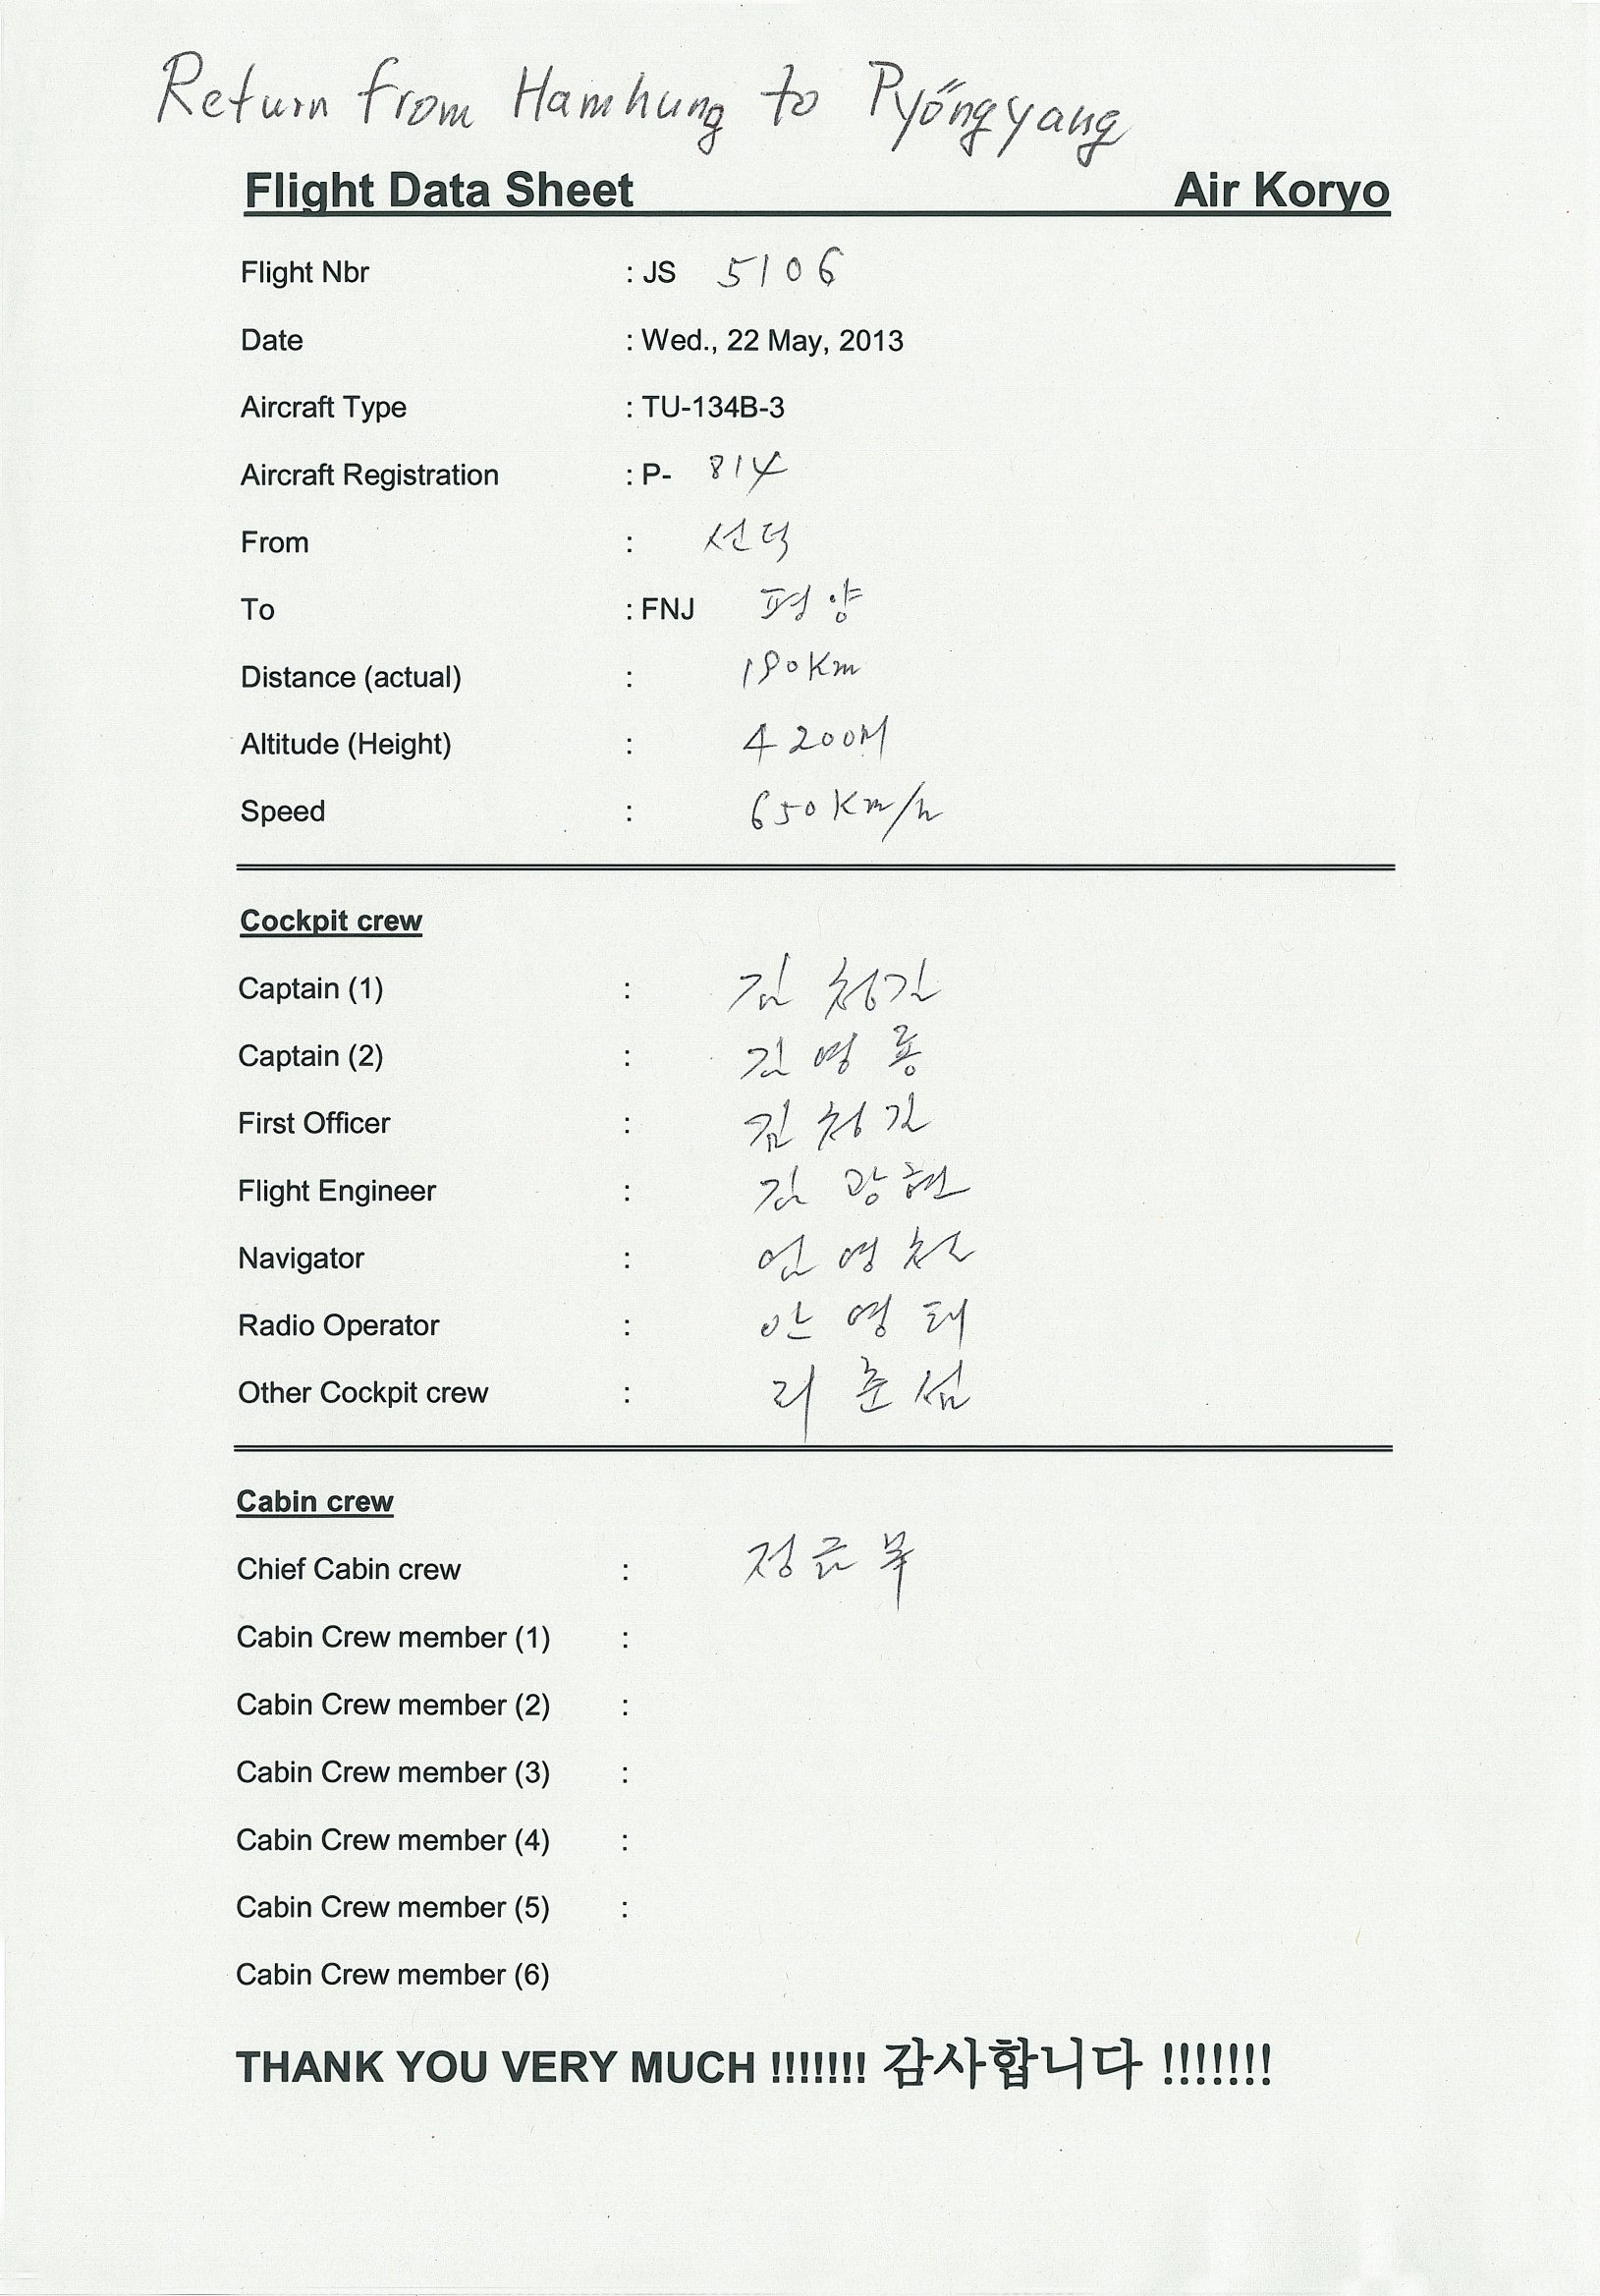 Return from Hamhung to Pyŏngyang
Flight Data Sheet Air Koryo
Flight Nbr : JS 5106
Date : Wed., 22 May, 2013
Aircraft Type : TU-134B-3
Aircraft Registration : P- 814
From : 선덕
To : FNJ 평양
Distance (actual) : 190Km
Altitude (Height) : 4200M
Speed : 650Km/h
Cockpit crew
Captain (1) : 김 청길
Captain (2) : 김 명룡
First Officer : 김 청길
Flight Engineer : 김 광현
Navigator : 엄 영천
Radio Operator : 안 영태
Other Cockpit crew : 리 춘섭
Cabin crew
Chief Cabin crew : 정
Cabin Crew member (1) :
Cabin Crew member (2) :
Cabin Crew member (3) :
Cabin Crew member (4) :
Cabin Crew member (5) :
Cabin Crew member (6)
THANK YOU VERY MUCH !!!!!!! 감사합니다 !!!!!!!